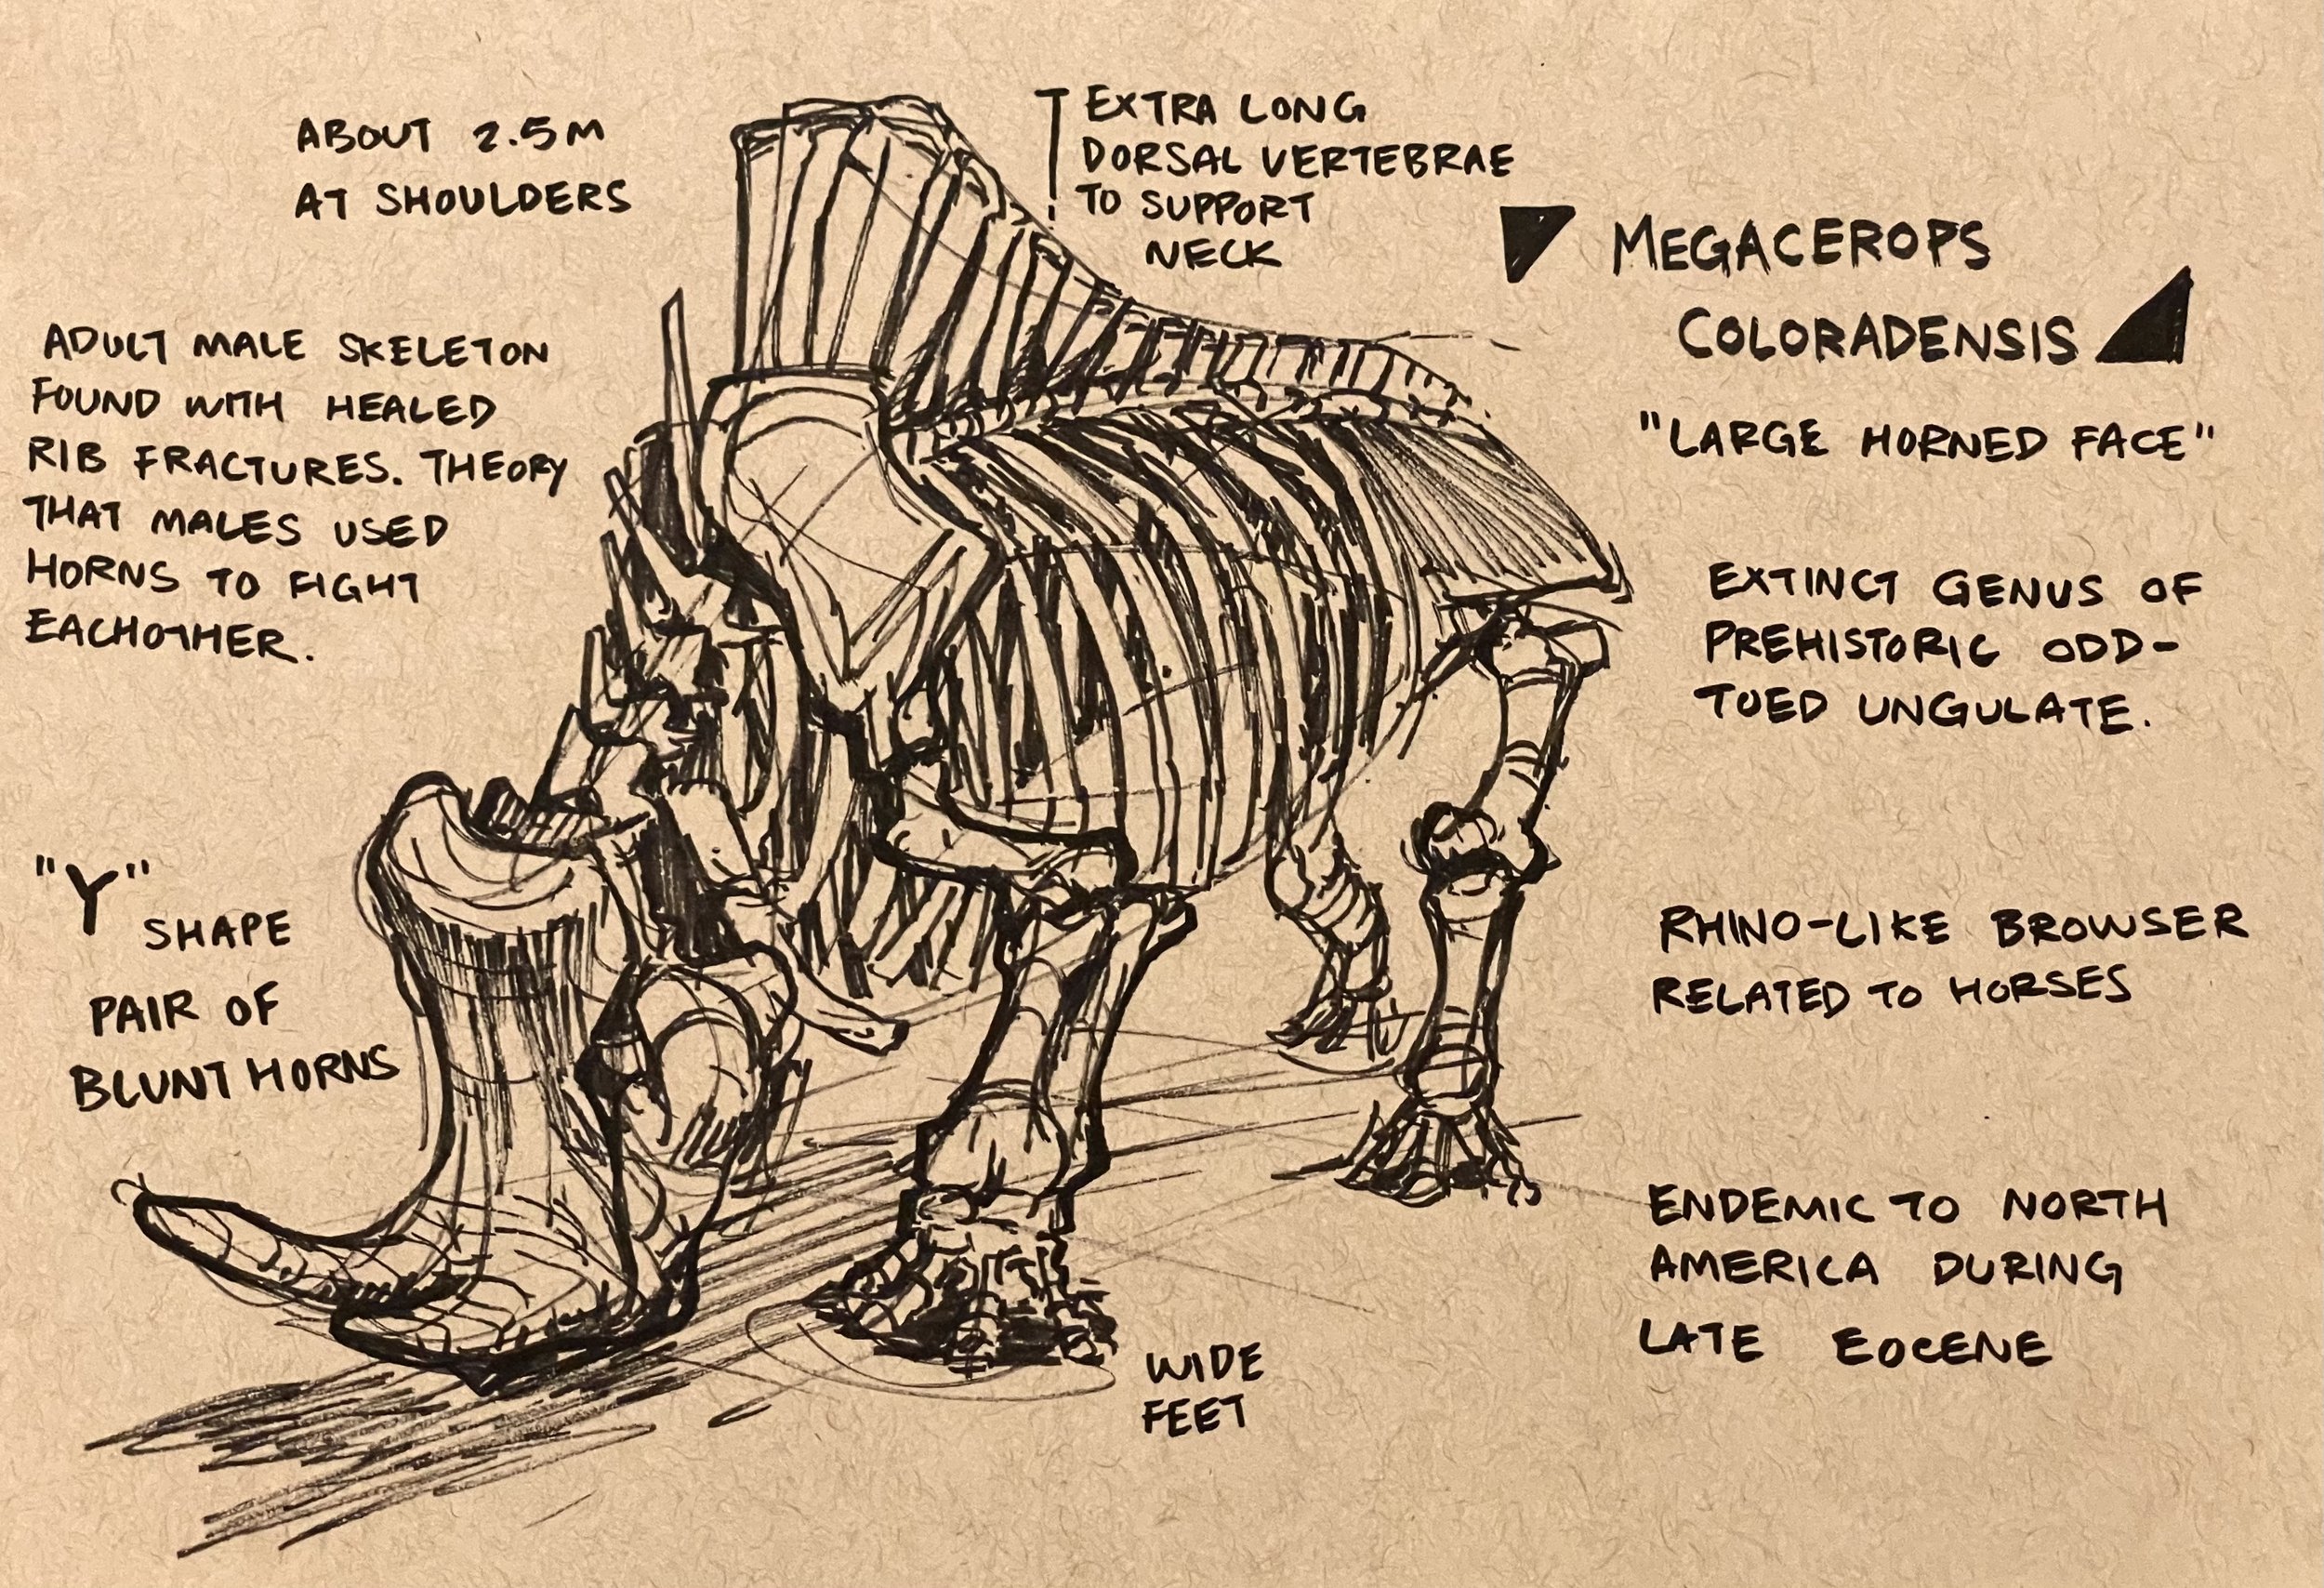 ABOUT 2.5M
AT SHOULDERS
EXTRA LONG
DORSAL VERTEBRAE
TO SUPPORT
NECK
MEGACEROPS
COLORADENSIS
"LARGE HORNED FACE"
ADULT MALE SKELETON
FOUND WITH HEALED
RIB FRACTURES. THEORY
THAT MALES USED
HORNS TO FIGHT
EACHOTHER.
EXTINCT GENUS OF
PREHISTORIC ODD-
TOED UNGULATE.
"Y" SHAPE
PAIR OF
BLUNT HORNS
RHINO-LIKE BROWSER
RELATED TO HORSES
ENDEMIC TO NORTH
AMERICA DURING
LATE EOCENE
WIDE
FEET